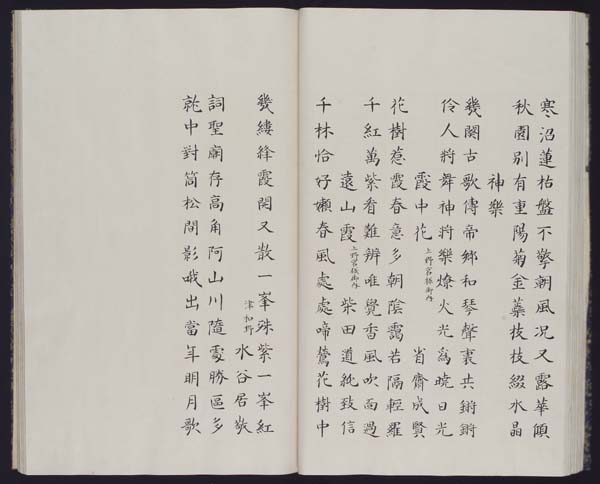 寒沼蓮枯盤不擎朝風况又露華傾
秋園別有重陽菊金蘂枝枝綴水晶
神樂
幾闋古歌傳帝鄉和琴聲裏共鏘鏘
伶人將舞神將樂燎火光為曉日光
霞中花 上野宮掖御內 省齋成賢
花樹惹霞春意多朝陰靄若隔輕羅
千紅萬紫看難辨唯覺香風吹面過
遠山霞 上野宮掖御內 柴田道純致信
千林恰好嫩春風處處啼鶯花樹中
幾縷絳霞閑又散一峯殊紫一峯紅
津和野 水谷居敬
詞聖廟存高角阿山川隨處勝區多
乾中對箇松間影哦出當年明月歌